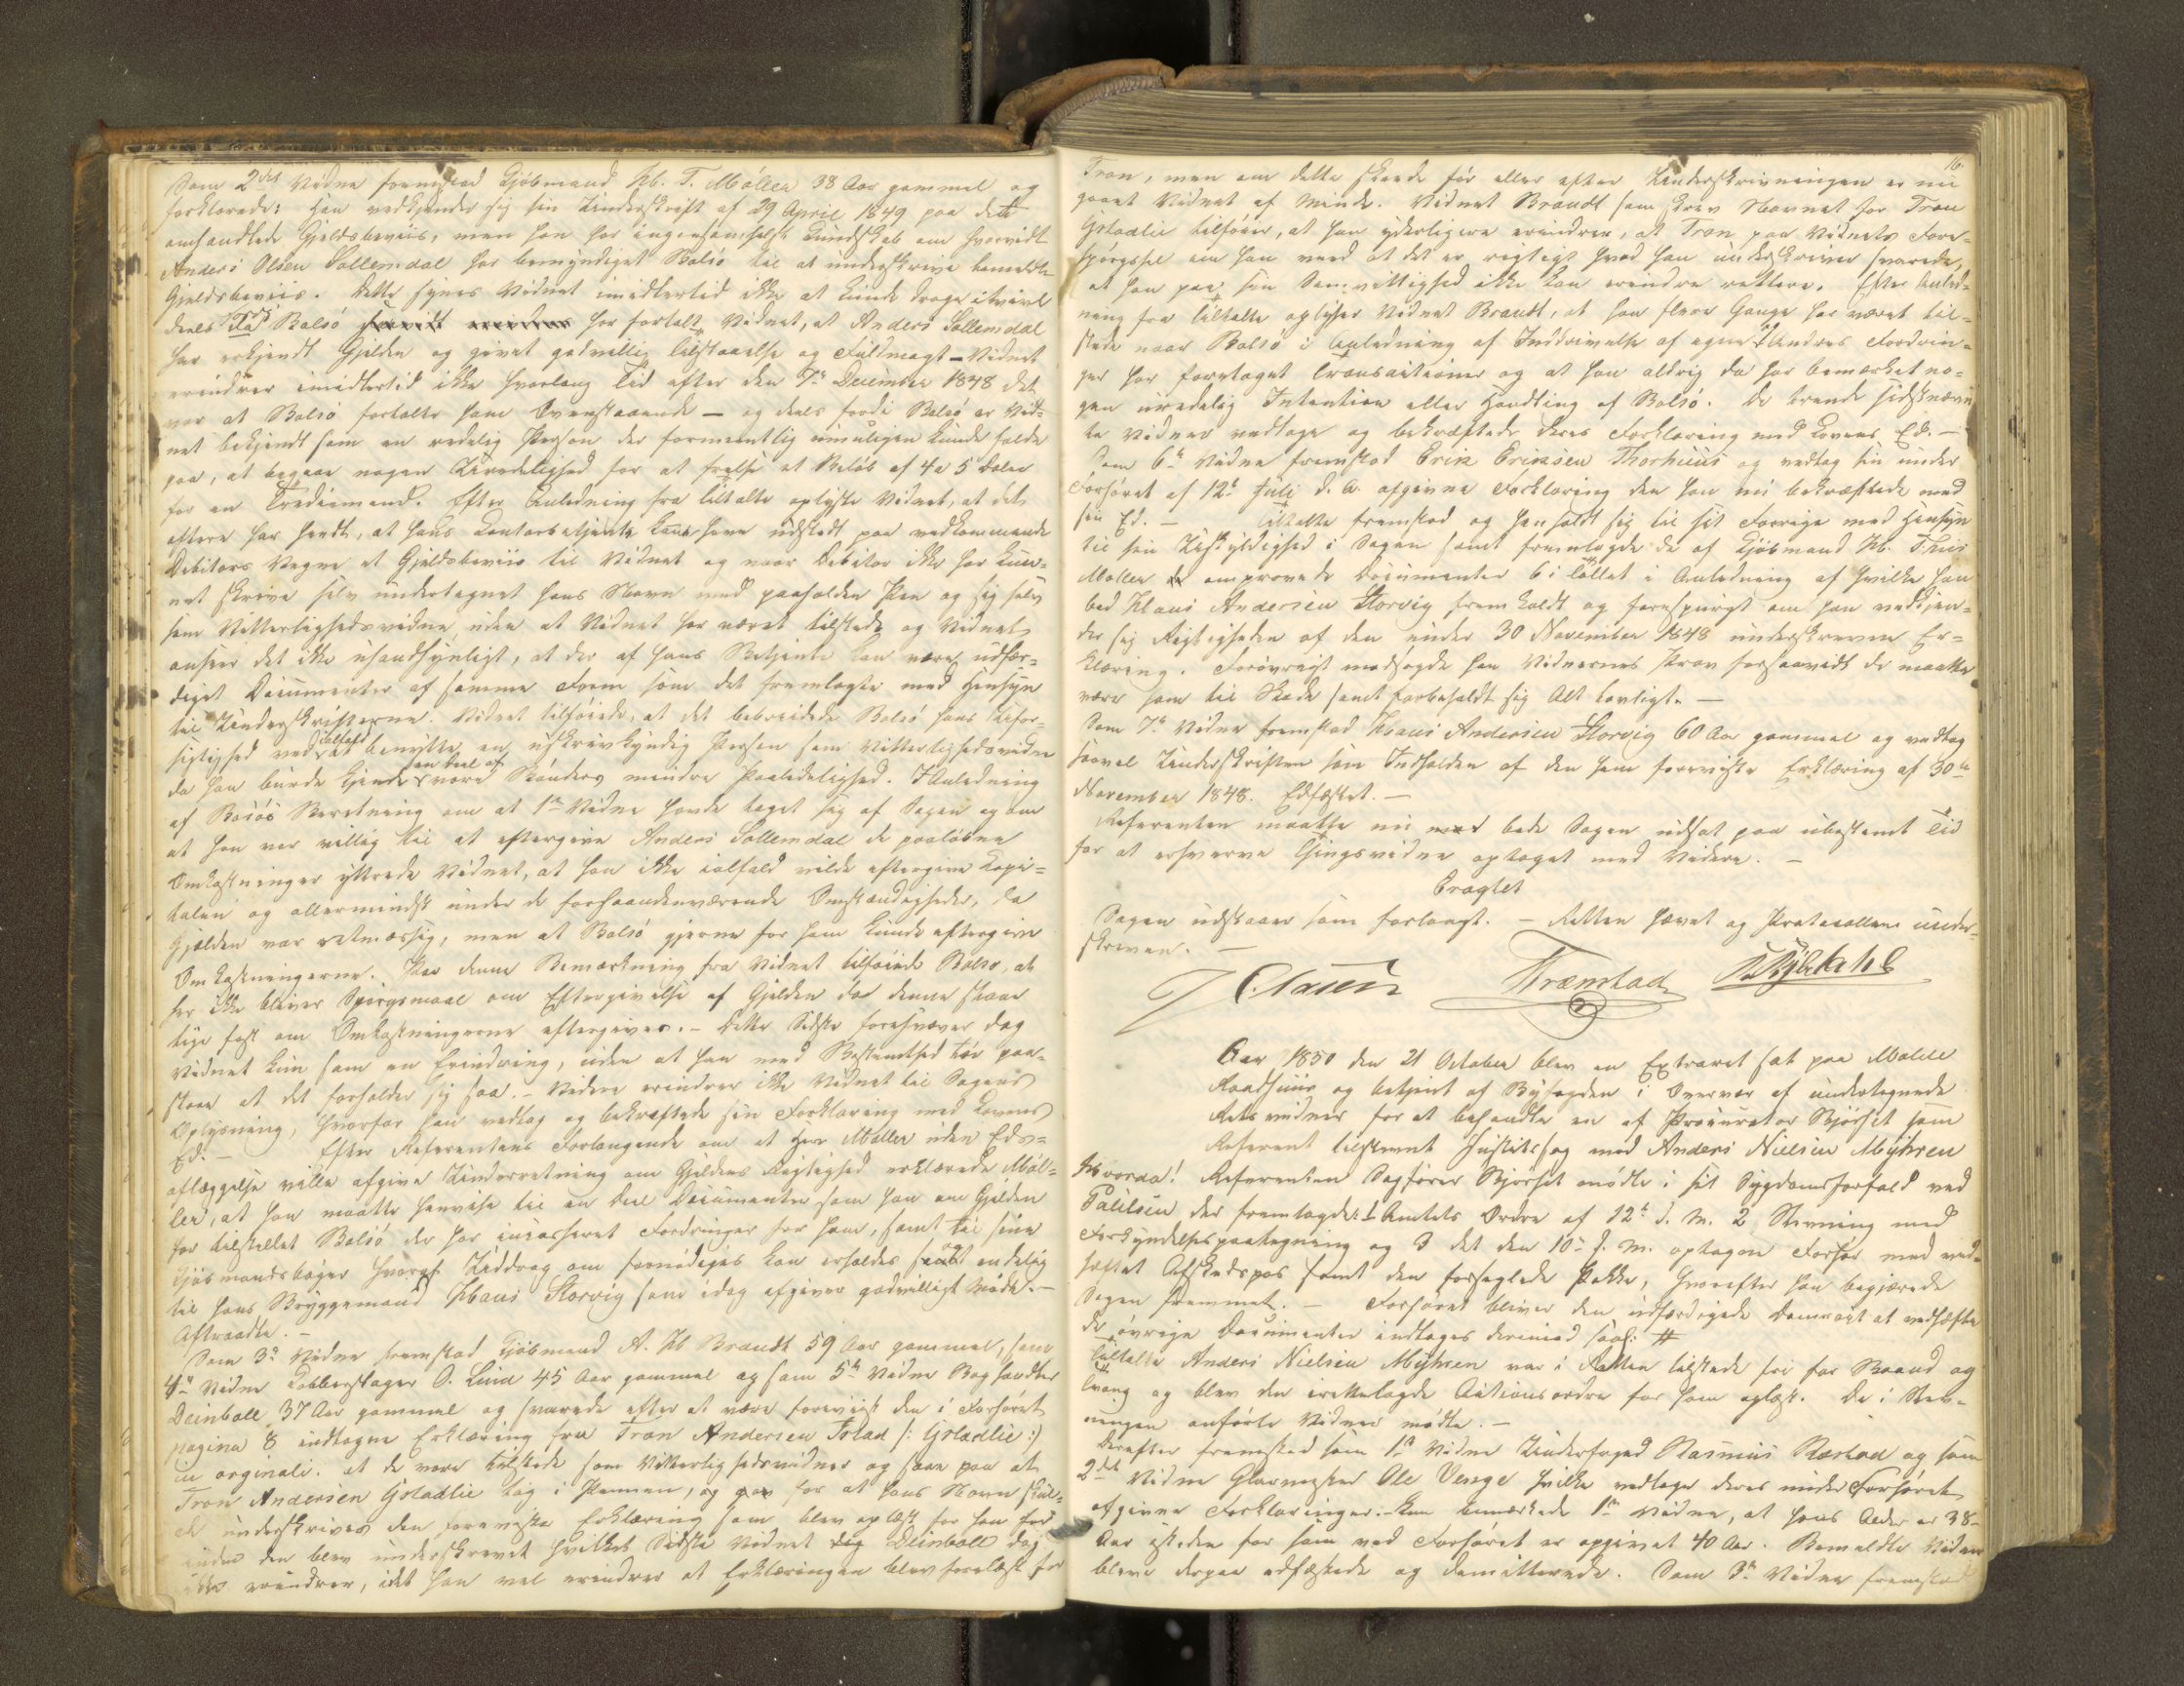 Som 2det Vidne fremstod Kjøbmand Hb. T. Møller 38 Aar gammel og
forklarede: Han vedkjender sig sin Underskrift af 29 April 1849 paa dette
omhandlede Gjeldsbeviis, men han har ingensomhelst Kundskab om hvorvidt
Anders Olsen Sollemdal har bemyndiget Bolsø til at underskrive bemeldte
Gjeldsbeviis. Dette synes Vidnet imidlertid ikke at kunde drage i tvivl
deels Bolsø har fortalt Vidnet, at Anders Sollemdal
har erkjendt Gjelden og givet godvillig Tilstaaelse og Fuldmagt – Vidnet
erindrer imidlertid ikke hvorlang Tid efter den 7de December 1848 det
var at Bolsø fortalte ham Ovenstaaende – og deels fordi Bolsø er Vid-
net bekjendt som en redelig Person der formeentlig umuligen kunde falde
paa, at begaae nogen Uredelighed for at frelse et Beløb af 4 a 5 Daler
for en Trediemand. Efter Anledning fra Tiltalte oplyste Vidnet, at det
oftere har hendt, at hans Contorbetjente have udstedt paa vedkommende
Debitors Vegne et Gjeldsbeviis til Vidnet og naar Debitor ikke har kun-
net skrive selv undertegnet hans Navn med paaholden Pen og sig selv
som Vitterlighedsvidne, uden at Vidnet har været tilstede og Vidnet
anseer det ikke usandsynligt, at der af hans Betjente kan være udfær-
diget Documenter af samme Form som det fremlagte med Hensyn
til Underskrifterne. Vidnet tilføiede, at det bebreidede Bolsø hans Ufor-
sigtighed ved at benytte en uskrivkyndig Person som Vitterlighedsvidne
da han burde kjende en Deel af vore Bønders mindre Paalidelighed. I Anledning
af Bolsøs Beretning om at 1ste Vidne havde taget sig af Sagen og om
at han var villig til at eftergive Anders Sollemdal de paaløbne
Omkostninger yttrede Vidnet, at han ikke ialfald vilde eftergive Capi-
talen og allermindst under de forhaandenværende Omstændigheder, da
Gjælden var retmæssig, men at Bolsø gjerne for ham kunde eftergive
Omkostningerne. Paa denne Bemærkning fra Vidnet tilføiede Bolsø, at
her ikke bliver Spørgsmaal om Eftergivelse af Gjelden da denne staar
lige fast om Omkostningerne eftergives. – Dette Sidste foresvæver dog
Vidnet kun som en Erindring, uden at han med Bestemthed tør paa-
staae at det forholder sig saa. – Videre erindrer ikke Vidnet til Sagens
Oplysning, hvorfor han vedtog og bekræftede sin Forklaring med Lovens
Ed. – Efter Referentens Forlangende om at Herr Møller uden Eds-
aflæggelse ville afgive Underretning om Gjeldens Rigtighed erklærede Møl-
ler, at han maatte henvise til en Deel Documenter som han om Gjelden
har tilstillet Bolsø der har incasseret Fordringer for ham, samt til sine
Kjøbmandsbøger hvoraf Uddrag om fornødiges kan erholdes og endelig
til hans Bryggemand Klaus Storvig som idag afgiver godvilligt Møde. –
Aftraadte. –
Som 3de Vidne fremstod Kjøbmand A. Hb Brandt 59 Aar gammel, som
4de Vidne Kobberslager O. Lind 45 Aar gammel og som 5te Vidne Boghandler
Deinboll 37 Aar gammel og svarede efter at være foreviist den i Forhøret
pagina 8 indtagne Erklæring fra Tron Andersen Istad /: Gstadlie :/
in orginali. at de vare tilstede som Vitterlighedsvidner og saae paa at
Tron Andersen Gstadlie tog i Pennen, og for at hans Navn skul-
de underskrives den foreviiste Erklæring som blev oplæst for ham før
end den blev underskrevet hvilket Sidste Vidnet Deinboll dog
ikke erindrer, idet han vel erindrer at Erklæringen blev forelæst for
16.
Tron, men om dette skeede før eller efter Underskrivningen er nu
gaaet Vidnet af Minde. Vidnet Brandt som skrev Navnet for Tron
Gstadlie tilføier, at han yderligere erindrer, at Tron paa Vidnets Fore-
spørgsel om han veed at det er rigtigt hvad han underskriver svarede,
at han paa sin Samvittighed ikke kan erindre rettere. Efter Anled-
ning fra Tiltalte oplyser Vidnet Brandt, at han flere Gange har været til-
stede naar Bolsø i Anledning af Inddrivelse af egne og Andres Fordrin-
ger har foretaget Transactioner og at han aldrig da har bemærket no-
gen uredelig Intention eller Handling af Bolsø. De trende sidstnævn-
te Vidner vedtoge og bekræftede deres Forklaring med Lovens Ed. –
Som 6te Vidne fremstod Erik Eriksen Thorhuus og vedtog sin under
Forhøret af 12te Juli d. A. afgivne Forklaring den han nu bekræftede med
sin Ed. – Tiltalte fremstod og henholdt sig til sit Forrige med Hensyn
til sin Uskyldighed i Sagen samt fremlagde de af Kjøbmand Hb. Thiis
Møller omprovede Documenter 6 i Tallet i Anledning af hvilke han
bad Klaus Andersen Storvig fremkaldt og forespurgt om han vedkjen-
der sig Rigtigheden af den under 30 November 1848 underskrevne Er-
klæring. Forøvrigt modsagde han Vidnernes Prov forsaavidt de maatte
være ham til Skade samt forbeholdt sig Alt lovligt. –
Som 7de Vidne fremstod Klaus Andersen Storvig 60 Aar gammel og vedtog
saavel Underskriften som Indholden af den ham foreviiste Erklæring af 30te
November 1848. Edfæstet. –
Referenten maatte nu bede Sagen udsat paa ubestemt Tid
for at erhverve Thingsvidne optaget med Videre. –
Eragtet
Sagen udstaaer som forlangt. – Retten hævet og Protocollen under-
skreven. –
J Claus
Aar 1850 den 21 October blev en Extraret sat paa Molde
Raadhuus og betjent af Byfogden i Overvær af undertegnede
Retsvidner for at behandle en af Procurator Bjørset som
Referent tilstevnt Justitssag mod Anders Nielsen Myhren
Hvorda! Referenten Sagfører Bjørset mødte i sit Sygdomsforfald ved
Paulsen der fremlagde: 1 Amtets Ordre af 12te d. M. 2 Stevning med
Forkyndelsespaategning og 3 det den 10de d. M. optagne Forhør med ved-
hæftet Afskedspas samt den forseglede Pakke, hvorefter han begjærede
Sagen fremmet. – Forhøret bliver den udfærdigede Domsact at vedhæfte
de øvrige Documenter indtages derimod saal: #
Tiltalte Anders Nielsen Myhren var i Retten tilstede fri for Baand og
Tvang og blev den irettelagde Actionsordre for ham oplæst. De i Stev-
ningen anførte Vidner mødte. –
Derefter fremstod som 1ste Vidne Underfoged Rasmus Røstad og som
2det Vidne Glarmester Ole Venge hvilke vedtoge deres under Forhøret
afgivne Forklaringer. – Kun bemærkede 1ste Vidne, at hans Alder er 38-
Aar isteden for som ved Forhøret er opgivet 40 Aar. Bemeldte Vidner
bleve derpaa edfæstede og demitterede. Som 3de Vidne fremstod